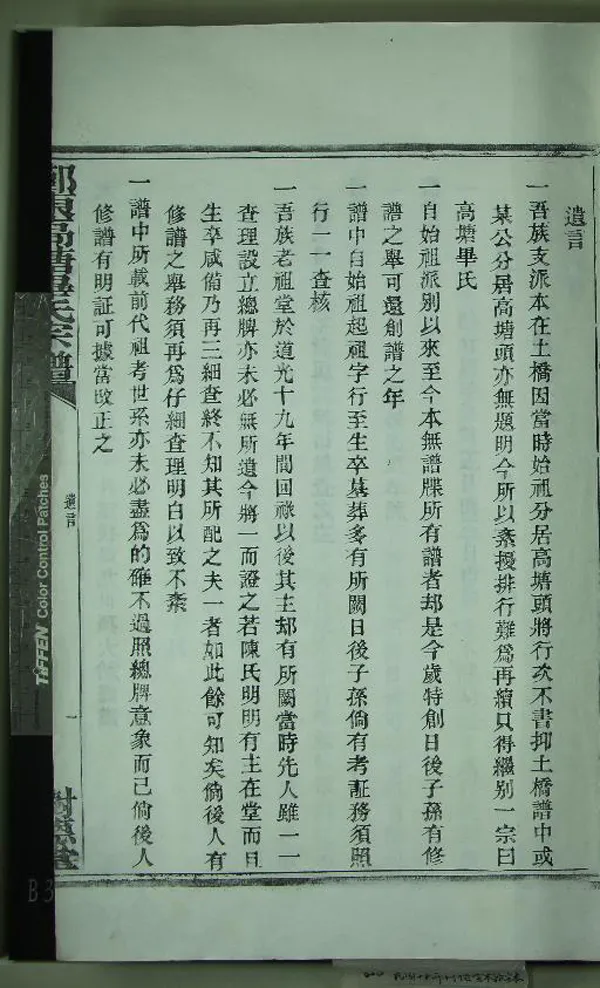 遺言
一吾族支派本在土橋因當時始祖分居高塘頭將行次不書抑土橋譜中或
某公分居高塘頭亦無題明今所以紊擾排行難為再續只得繼别一宗曰
高塘畢氏
一自始祖派别以來至今本無譜牒所有譜者却是今歲特創日後子孫有修
譜之舉可還創譜之年
一譜中自始祖起祖字行至生卒墓葬多有所闕日後子孫倘有考証務須照
行一一查核
一吾族老祖堂於道光十九年間回祿以後其主却有所闕當時先人雖一一
查理設立總牌亦未必無所遺今將一而證之若陳氏明明有主在堂而且
生卒咸備乃再三細查終不知其所配之夫一者如此餘可知矣倘後人有
修譜之舉務須再為仔細查理明白以致不紊
一譜中所載前代祖考世系亦未必盡為的確不過照總牌意象而已倘後人
修譜有明証可據當改正之
高塘畢氏宗譜
遺言
一
TIFFEN Color Control Patches
B3